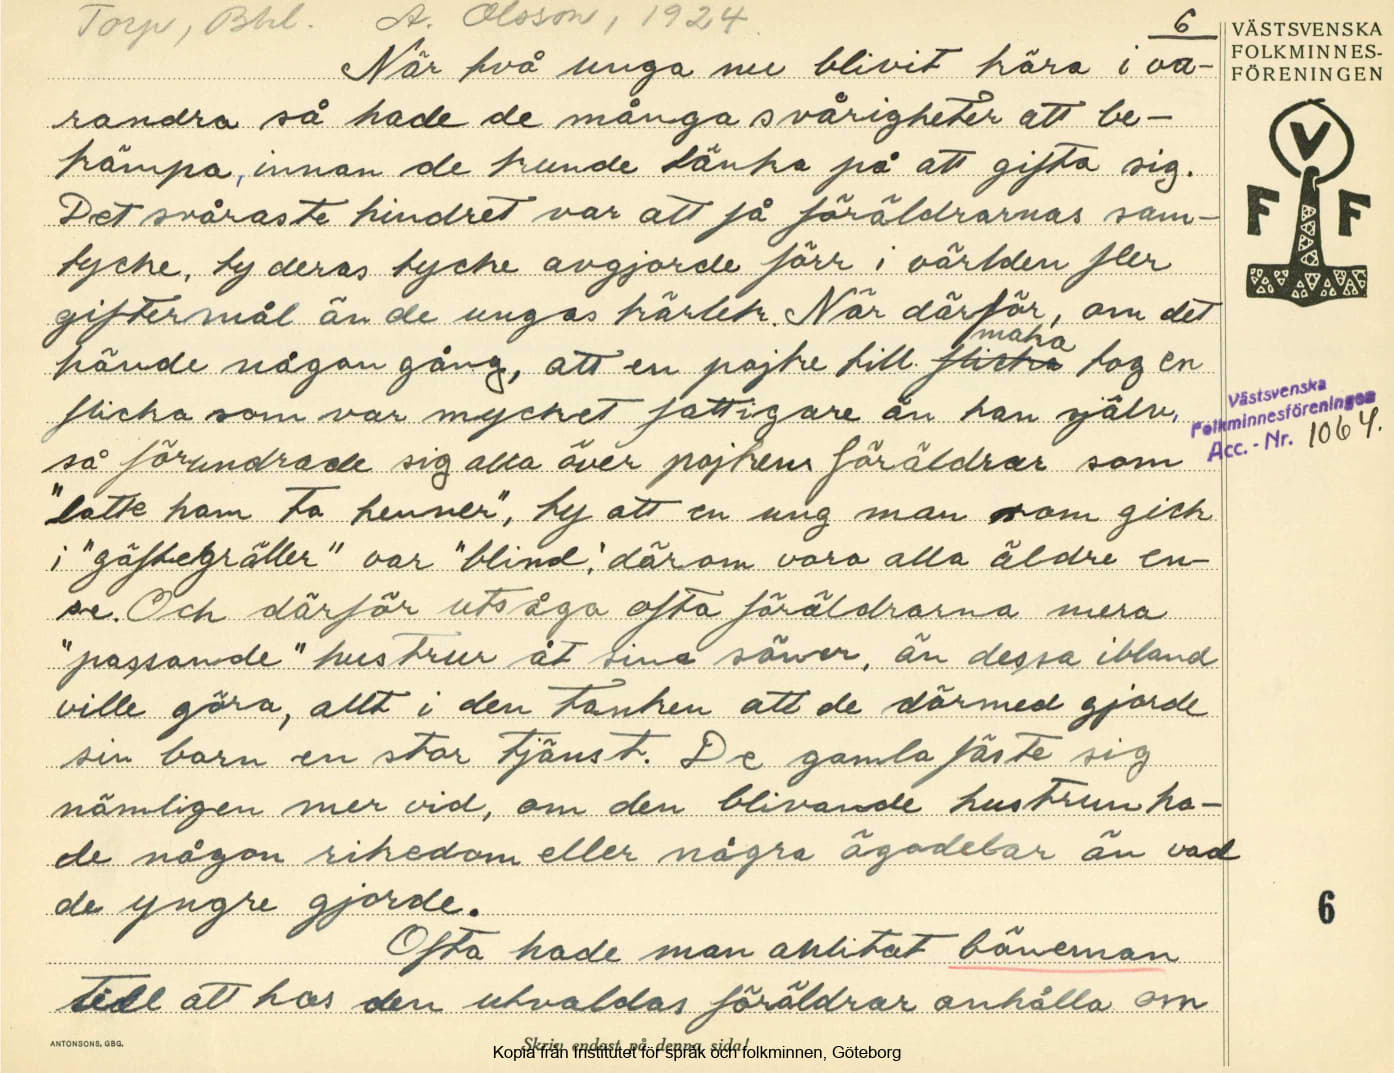 Torp, Bhl. A. Olsson, 1924.
6
När två unga nu blivit kära i va-
randra så hade de många svårigheter att be-
kämpa, innan de kunde tänka på att gifta sig.
Det svåraste hindret var att få föräldrarnas sam-
tycke, ty deras tycke avgjorde förr i världen fler
giftermål än de ungas kärlek. När därför, om det
hände någon gång, att en pojke till flicka maka tog en
flicka som var mycket fattigare än han själv,
så förundrade sig alla över pojkens föräldrar som
"latte ham ta henner", ty att en ung man som gick
i "gäftegräller" var "blind", därom voro alla äldre en-
se. Och därför utsågo ofta föräldrarna mera
"passande" hustrur åt sina söner, än dessa ibland
ville göra, allt i den tanken att de därmed gjorde
sin barn en stor tjänst. De gamla fäste sig
nämligen mer vid, om den blivande hustrun ha-
de någon rikedom eller några ägodelar än vad
de yngre gjorde.
Ofta hade man anlitat böneman
till att hos den utvaldas föräldrar anhålla om
VÄSTSVENSKA
FOLKMINNES-
FÖRENINGEN
V
F F
Västsvenska
Folkminnesföreningen
Acc. - Nr. 1064.
6
ANTONSONS, GBG.
Skriv endast på denna sida!
Kopia från Institutet för språk och folkminnen, Göteborg